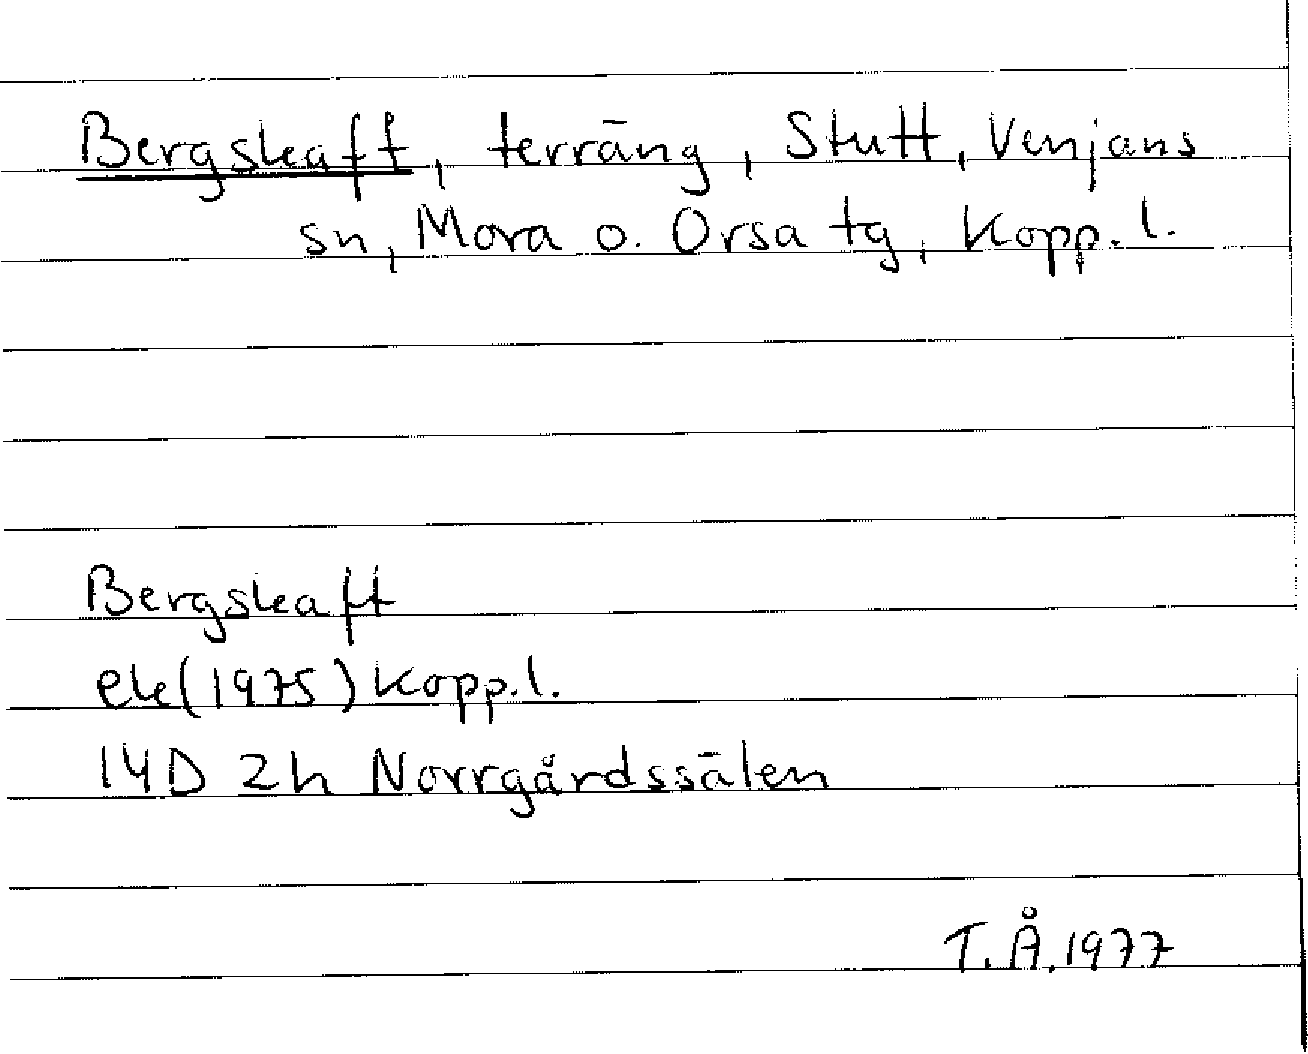 Bergskaft, terräng, Stutt, Venjans
sn, Mora o. Orsa tg, Kopp. l.
Bergskaft
ek (1975) Kopp. l.
14D 2h Norrgårdssälen
T. Å. 1977